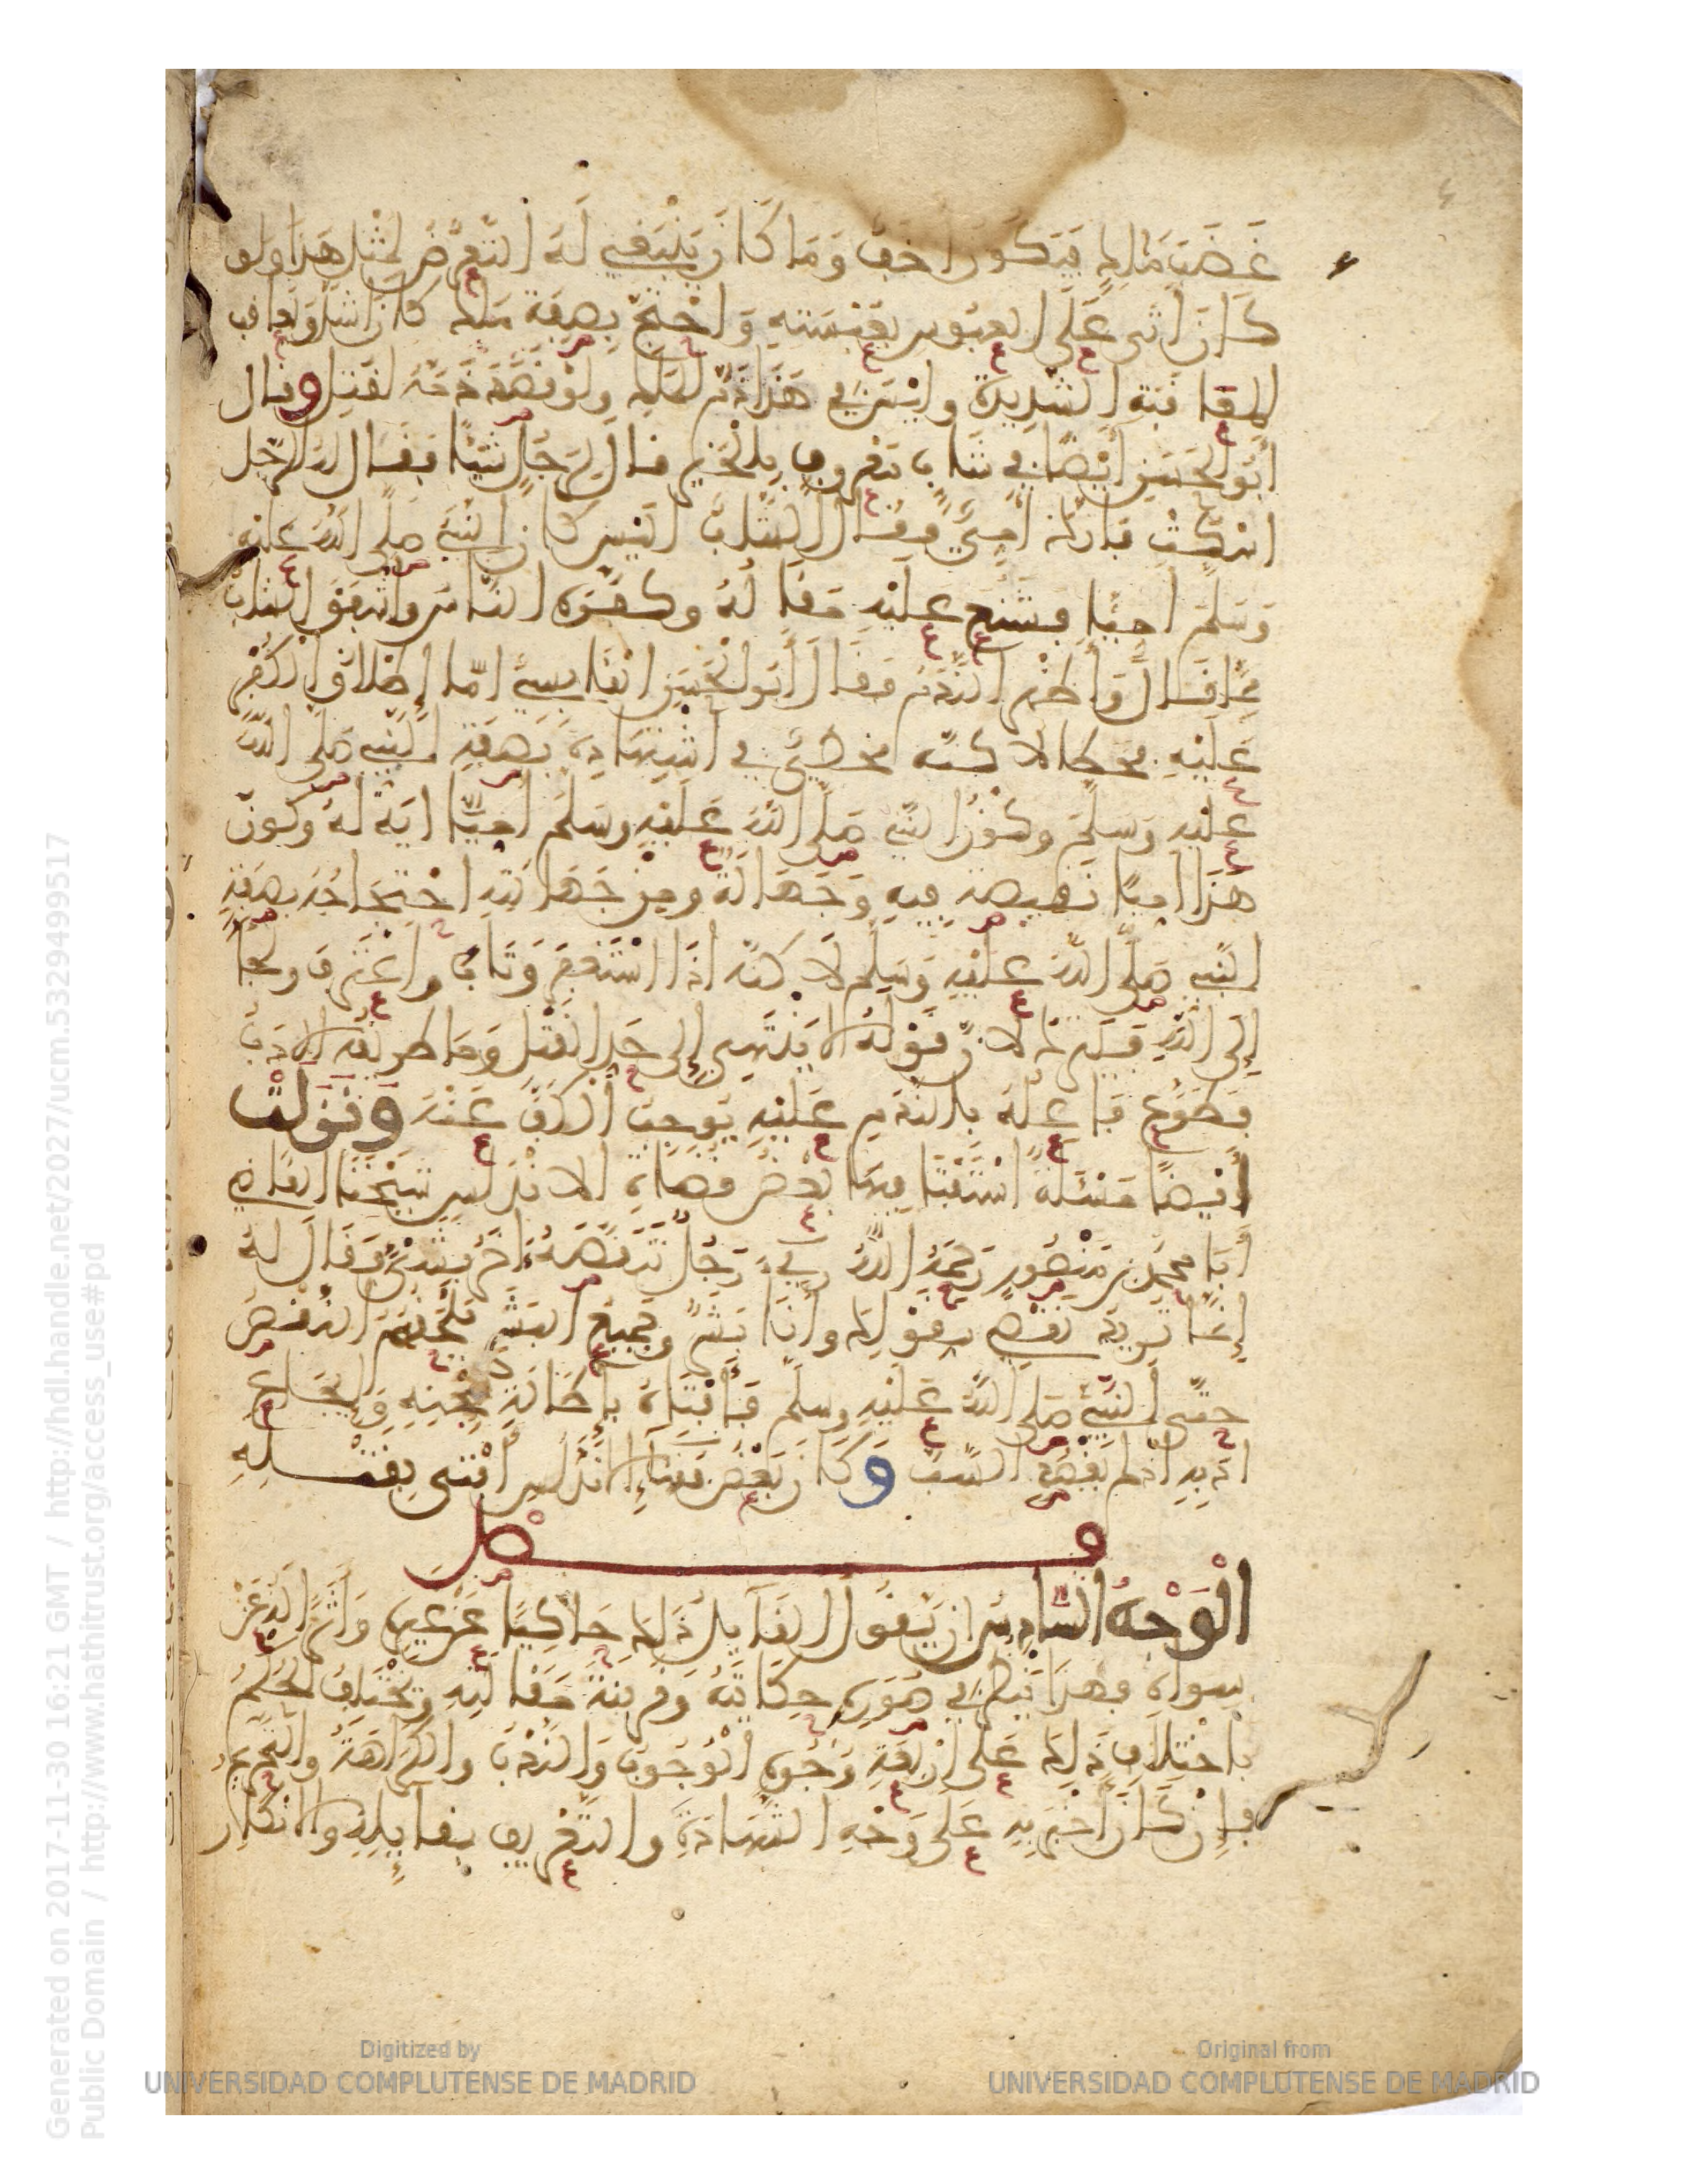 غَضَبَ مَالِكٍ فَيَكُونُ أَخَفَّ وَمَا كَانَ يَنْبَغِي لَهُ التَّعَرُّضُ لِمِثْلِ هَذَا وَلَوْ
كَانَ أَثْنَى عَلَى الْعَبُوسِ بِعَبْسَتِهِ وَاحْتَجَّ بِصِفَةِ مَلَكٍ كَانَ أَشَدَّ وَيُعَاقَبُ
الْمُعَاقَبَةَ الشَّدِيدَةَ وَلَيْسَ فِي هَذَا ذَمٌّ لِلْمَلَكِ وَلَوْ قَصَدَ ذَمَّهُ لَقُتِلَ وقال
أَبُو الْحَسَنِ أَيْضًا فِي شَابٍّ مَعْرُوفٍ بِالْخَيْرِ قَالَ لِرَجُلٍ شَيْئًا فَقَالَ لَهُ الرَّجُلُ
اسْكُتْ فَإِنَّكَ أُمِّيٌّ فَقَالَ الشَّابُّ أَلَيْسَ كَانَ النَّبِيُّ صَلَّى اللَّهُ عَلَيْهِ
وَسَلَّمَ أُمِّيًّا فَشُنِّعَ عَلَيْهِ مَقَالُهُ وَكَفَّرَهُ النَّاسُ وَأَشْفَقَ الشَّابُّ
مِمَّا قَالَ وَأَظْهَرَ النَّدَمَ فَقَالَ أَبُو الْحَسَنِ الْقَابِسِيُّ أَمَّا إِطْلَاقُ الْكُفْرِ
عَلَيْهِ فَخَطَأٌ لَاكِنَّهُ مُخْطِئٌ فِي اسْتِشْهَادِهِ بِصِفَةِ النَّبِيِّ صَلَّى اللَّهُ
عَلَيْهِ وَسَلَّمَ وَكَوْنُ النَّبِيِّ صَلَّى اللَّهُ عَلَيْهِ وَسَلَّمَ أُمِّيًّا ايَةٌ لَهُ وَكَوْنُ
هَذَا أُمِّيًّا نَقِيصَةٌ فِيهِ وَجَهَالَةٌ وَمِنْ جَهَالَتِهِ احْتِجَاجُهُ بِصِفَةِ
النَّبِيِّ صَلَّى اللَّهُ عَلَيْهِ وَسَلَّمَ لَاكِنَّهُ إِذَا اسْتَغْفَرَ وَتَابَ وَاعْتَرَفَ وَلَجَأَ
إِلَى اللَّهِ فَيُتْرَكُ لِأَنَّ قَوْلَهُ لَا يَنْتَهِي إِلَى حَدِّ الْقَتْلِ وَمَا طَرِيقُهُ الْأَدَبُ
فَطَوْعُ فَاعِلِهِ بِالنَّدَمِ عَلَيْهِ يُوجِبُ الْكَفَّ عَنْهُ وَنَزَلَتْ
أَيْضًا مَسْئَلَةٌ اسْتَفْتَا فِيهَا بَعْضُ قُضَاةِ الْانْدَلُسِ شَيْخَنَا الْقَاضِيَ
أَبَا مُحَمَّدِ بْنَ مَنْصُورٍ رَحِمَهُ اللَّهُ فِي رَجُلٍ تَنَقَّصَهُ آخَرُ بِشَيْءٍ فَقَالَ لَهُ
إِنَّمَا تُرِيدُ نَقْصِي بِقَوْلِكَ وَأَنَا بَشَرٌ وَجَمِيعُ الْبَشَرِ يَلْحَقُهُمُ النَّقْصُ
حَتَّى النَّبِيُّ صَلَّى اللَّهُ عَلَيْهِ وَسَلَّمَ فَأَفْتَاهُ بِإِطَالَةِ سِجْنِهِ وَإِيجَاعِ
أَدَبِهِ إِذْ لَمْ يَقْصِدِ السَّبَّ وَكَانَ بَعْضُ فُقَهَاءِ الْانْدَلُسِ أَفْتَى بِقَتْلِهِ
فصل
الْوَجْهُ السَّادِسُ أَنْ يَقُولَ الْقَائِلُ ذَلِكَ حَاكِيًا عَنْ غَيْرِهِ وَآثِرًا لَهُ عَنْ
سِوَاهُ فَهَذَا يُنْظَرُ فِي صُورَةِ حِكَايَتِهِ وَقَرِينَةِ مَقَالَتِهِ وَيَخْتَلِفُ الْحُكْمُ
بِاخْتِلَافِ ذَلِكَ عَلَى أَرْبَعَةِ وُجُوهٍ الْوُجُوبُ وَالنَّدْبُ وَالْكَرَاهَةُ وَالتَّحْرِيمُ
فَإِنْ كَانَ أَخْبَرَ بِهِ عَلَى وَجْهِ الشَّهَادَةِ وَالتَّعْرِيفِ بِقَائِلِهِ وَالْانْكَارِ